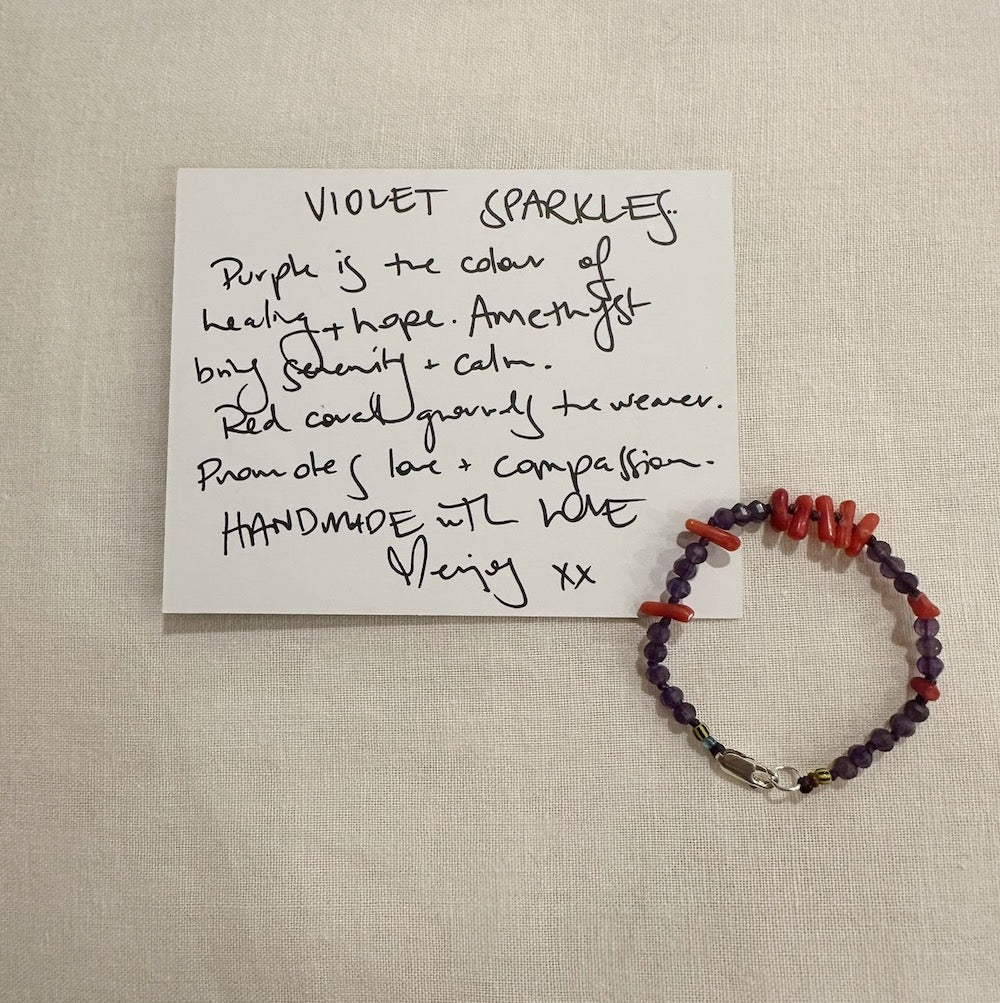 VIOLET SPARKLES..
Purple is the colour of
healing + hope. Amethyst
bring serenity + calm.
Red coral grounds the wearer.
Promotes love + compassion.
HANDMADE with LOVE
xx